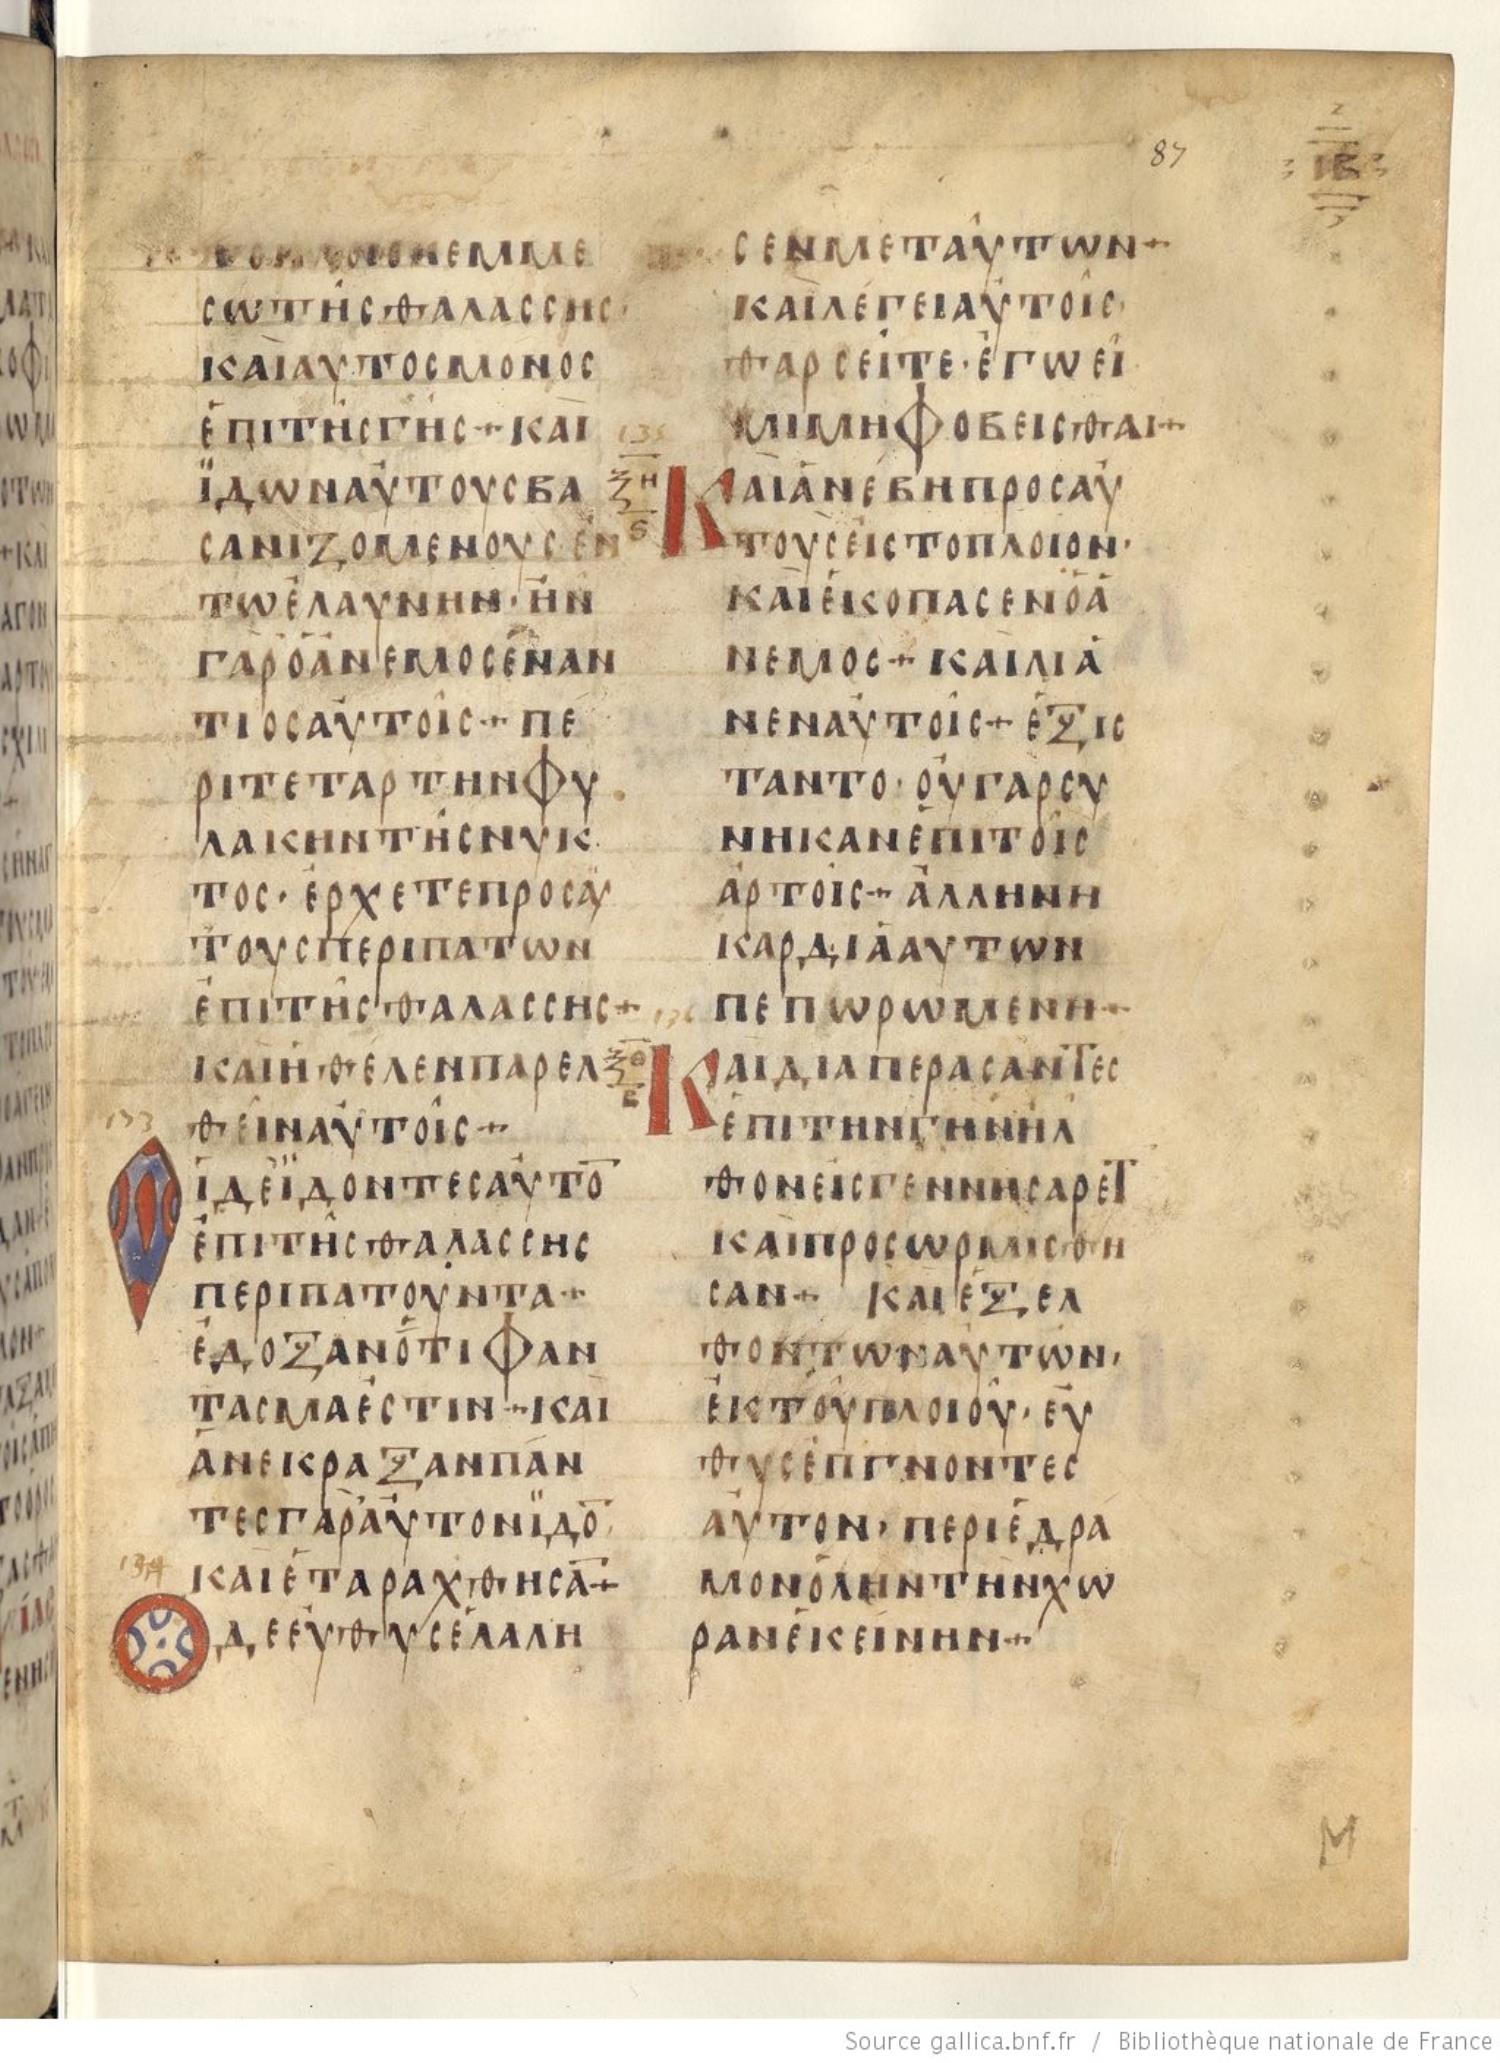 87
ΙΒ
ΕΜΜΕ
CωΤΗCΘΑΛΑCCΗC·
ΚΑΙΑΥΤΟCΜΟΝΟC
ΕΠΙΤΗCΓΗC+ΚΑΙ
ΪΔωΝΑΥΤΟΥCΒΑ
CΑΝΙΖΟΜΕΝΟΥCΕΝ
ΤωΕΛΑΥΝΗΝ·ΗΝ
ΓΑΡΟΑΝΕΜΟCΕΝΑΝ
ΤΙΟCΑΥΤΟΙC+ΠΕ
ΡΙΤΕΤΑΡΤΗΝΦΥ
ΛΑΚΗΝΤΗCΝΥΚ
ΤΟC·ΕΡΧΕΤΕΠΡΟCΑΥ
ΤΟΥCΠΕΡΙΠΑΤωΝ
ΕΠΙΤΗCΘΑΛΑCCΗC+
ΚΑΙΗΘΕΛΕΝΠΑΡΕΛ
ΘΕΙΝΑΥΤΟΙC+
133
ΟΙΔΕΪΔΟΝΤΕCΑΥΤΟ̅
ΕΠΙΤΗCΘΑΛΑCCΗC
ΠΕΡΙΠΑΤΟΥΝΤΑ+
ΕΔΟΞΑΝΟΤΙΦΑΝ
ΤΑCΜΑΕCΤΙΝ+ΚΑΙ
ΑΝΕΚΡΑΞΑΝΠΑΝ
ΤΕCΓΑΡΑΥΤΟΝΪΔΟ̅
134
ΚΑΙΕΤΑΡΑΧΘΗCΑ̅+
ΟΔΕΕΥΘΥCΕΛΑΛΗ
CΕΝΜΕΤΑΥΤωΝ+
ΚΑΙΛΕΓΕΙΑΥΤΟΙC·
ΘΑΡCΕΙΤΕ·ΕΓωΕΙ
ΜΙΜΗΦΟΒΕΙCΘΑΙ+
135
ΞΗ
ς
ΚΑΙΑΝΕΒΗΠΡΟCΑΥ
ΤΟΥCΕΙCΤΟΠΛΟΙΟΝ·
ΚΑΙΕΚΟΠΑCΕΝΟΑ
ΝΕΜΟC+ΚΑΙΛΙΑ
ΝΕΝΑΥΤΟΙC+ΕΞΙC
ΤΑΝΤΟ·ΟΥΓΑΡCΥ
ΝΗΚΑΝΕΠΙΤΟΙC
ΑΡΤΟΙC+ΑΛΛΗΝΗ
ΚΑΡΔΙΑΑΥΤωΝ
ΠΕΠωΡωΜΕΝΗ+
136
ΞΘ
Ε
ΚΑΙΔΙΑΠΕΡΑCΑΝΤΕC
ΕΠΙΤΗΝΓΗΝΗΛ
ΘΟΝΕΙCΓΕΝΝΗCΑΡΕΤ
ΚΑΙΠΡΟCωΡΜΙCΘΗ
CΑΝ+ ΚΑΙΕΞΕΛ
ΘΟΝΤωΝΑΥΤωΝ·
ΕΚΤΟΥΠΛΟΙΟΥ·ΕΥ
ΘΥCΕΠΓΝΟΝΤΕC
ΑΥΤΟΝ·ΠΕΡΙΕΔΡΑ
ΜΟΝΟΛΗΝΤΗΝΧω
ΡΑΝΕΚΕΙΝΗΝ+
M
Source gallica.bnf.fr / Bibliothèque nationale de France